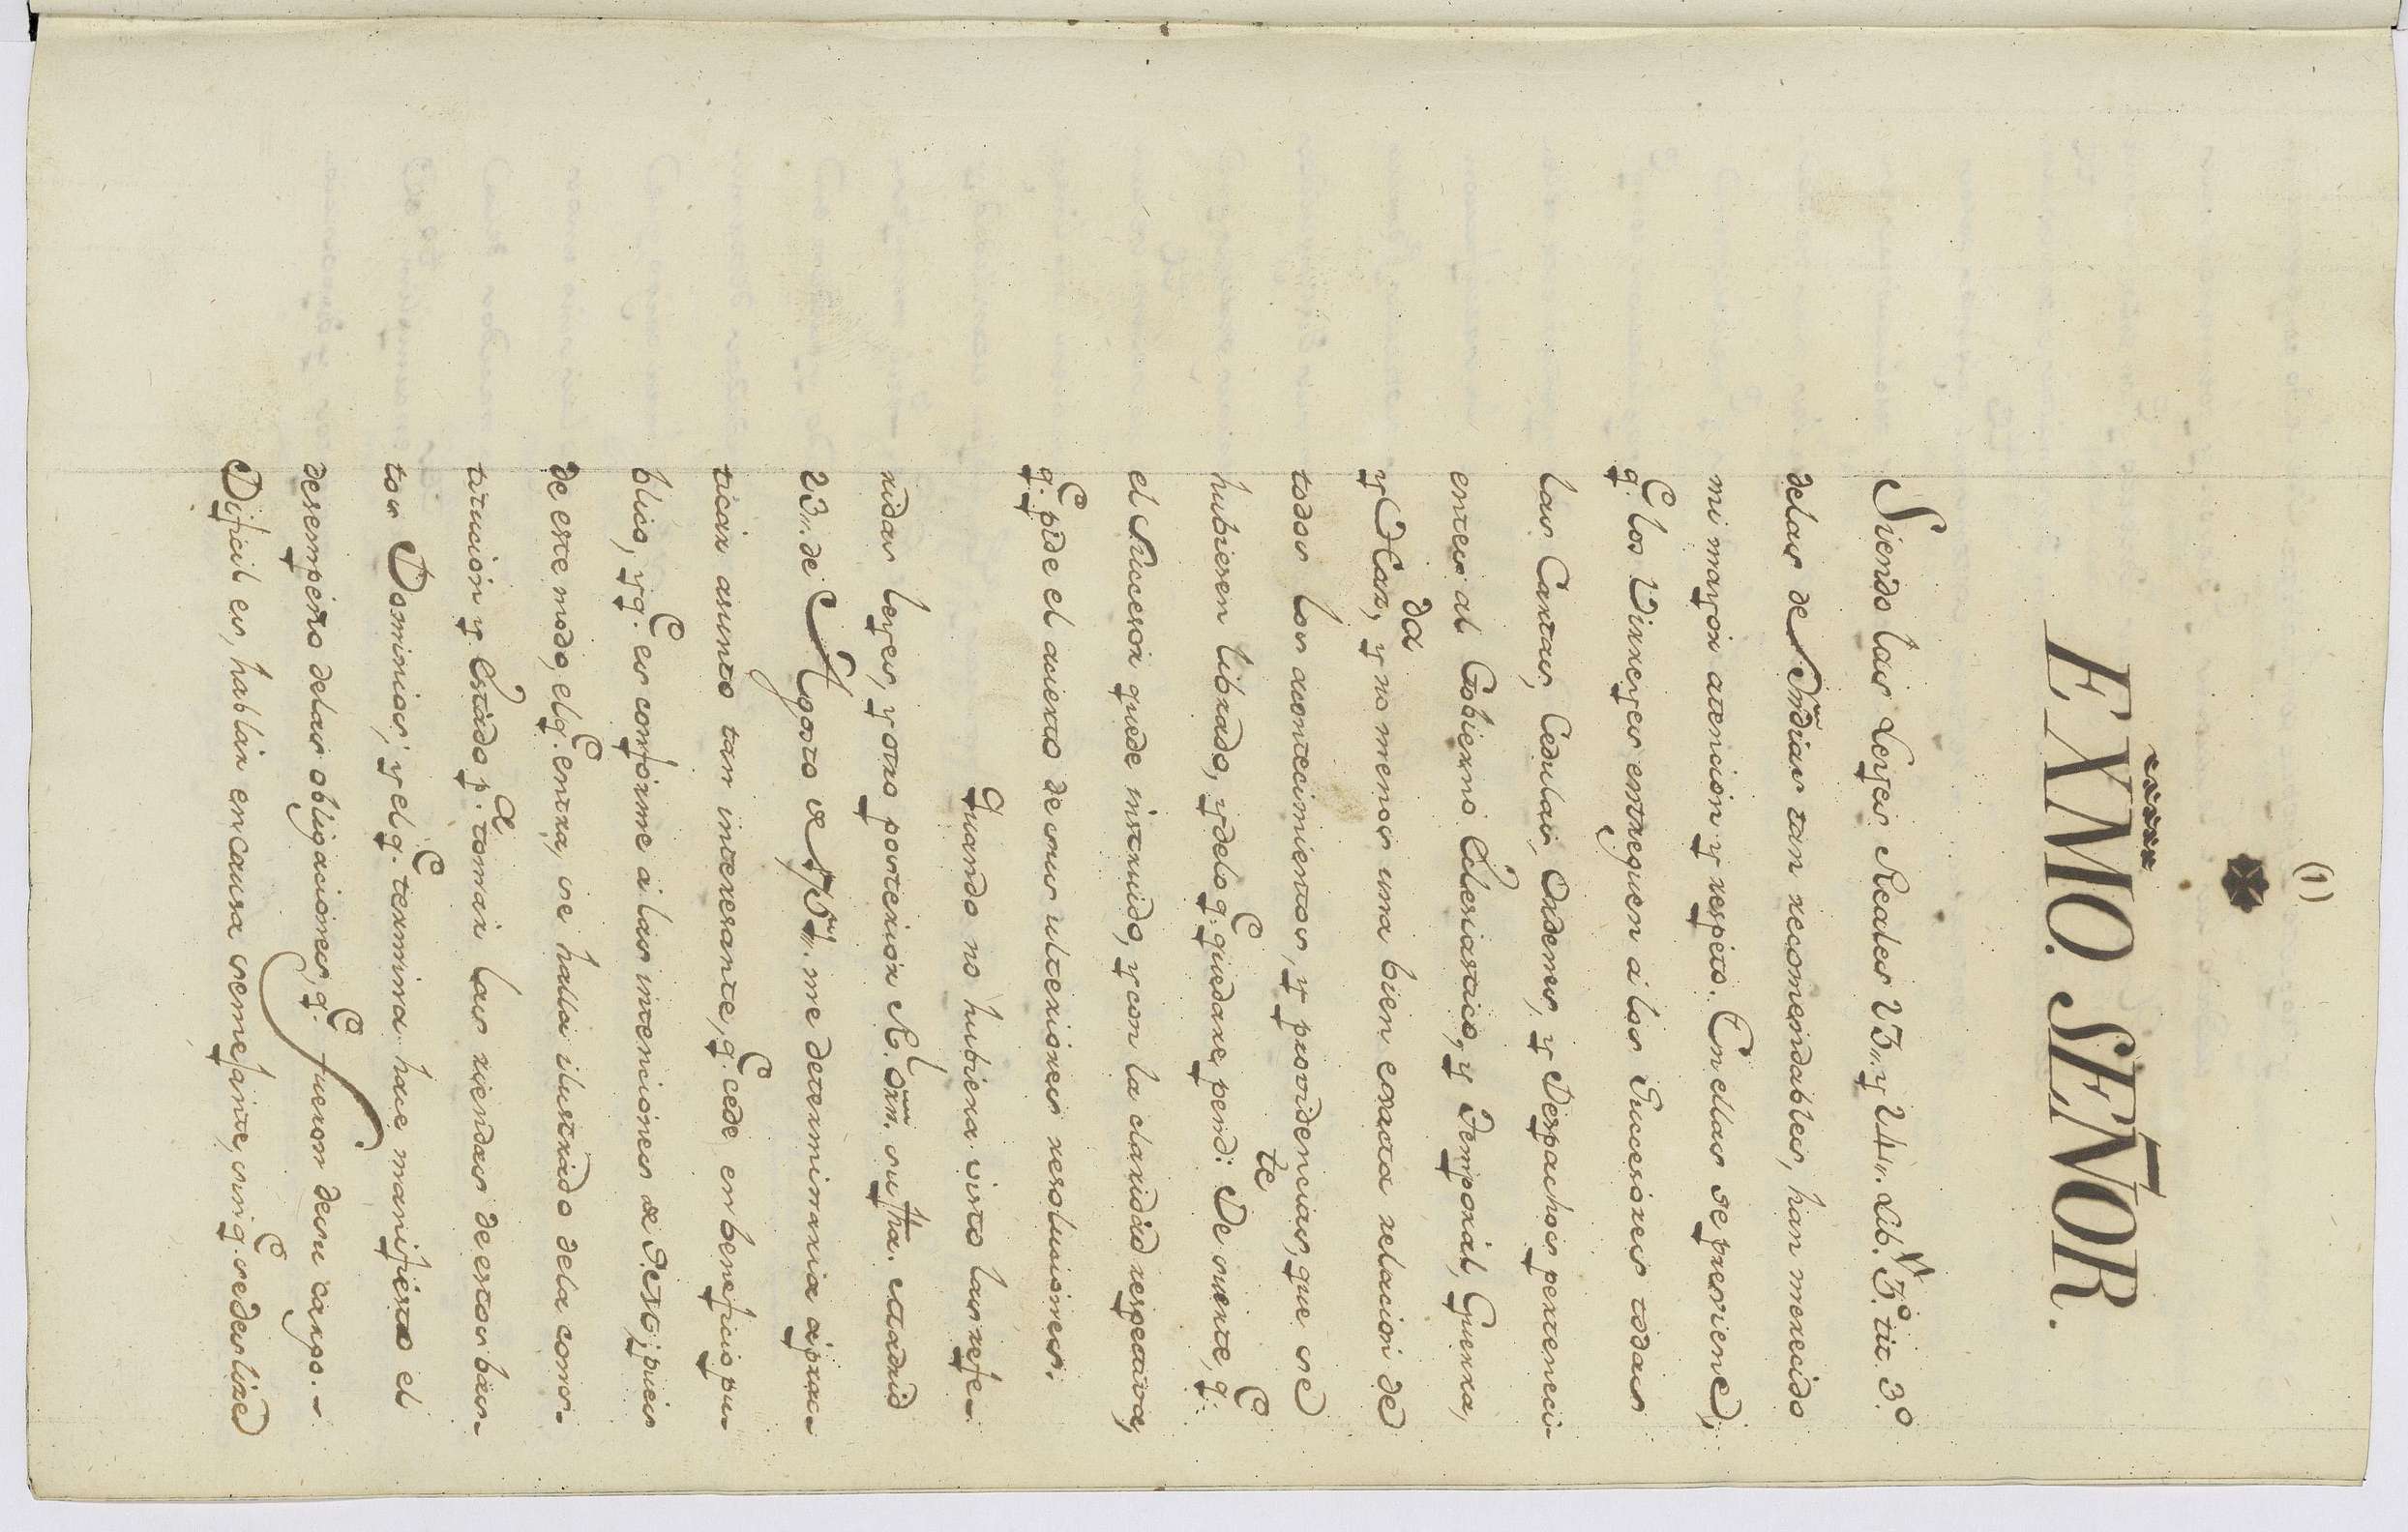 (1)
EXMO. SEÑOR.
Siendo las Leyes Reales 23,, y 24,, Lib. 3.º tit. 3.º
delas de Yndias tan recomendables, han merecido
mi mayor atencion y respeto. En ellas se previene,
q.e los Virreyes entreguen á los Succesores todas
las Cartas, Cedulas, Ordenes, y Despachos pertenecien-
entes al Gobierno Eclesiastico, y Temporál, Guerra,
y Hda, y no menos una bien exacta relacion de
todos los acontecimientos, y providencias, que se
hubiesen librado, y delo q.e quedare pend.te De suerte, q.e
el Succesor quede instruido, y con la claridád respectiva,
q.e pide el acierto de sus ulteriores resoluciones.
Quando no hubiera visto las refe-
ridas leyes, y otra posterior R.l Orn. su fha. en Madrid
23,, de Agosto de 1765,, me determinaria á prac-
ticar asunto tan interesante, q.e cede en beneficio pu-
blico, y q.e es conforme á las intenciones de S.M., pues
de este modo, el q.e entra, se halla ilustrado dela cons-
titucion y Estado p.a tomar las riendas de estos bas-
tos Dominios; y el q.e termina hace manifiesto el
desempeño delas obligaciones, q.e fueron desu cargo.-
Dificil es, hablar en causa semejante, sin q.e se deslize